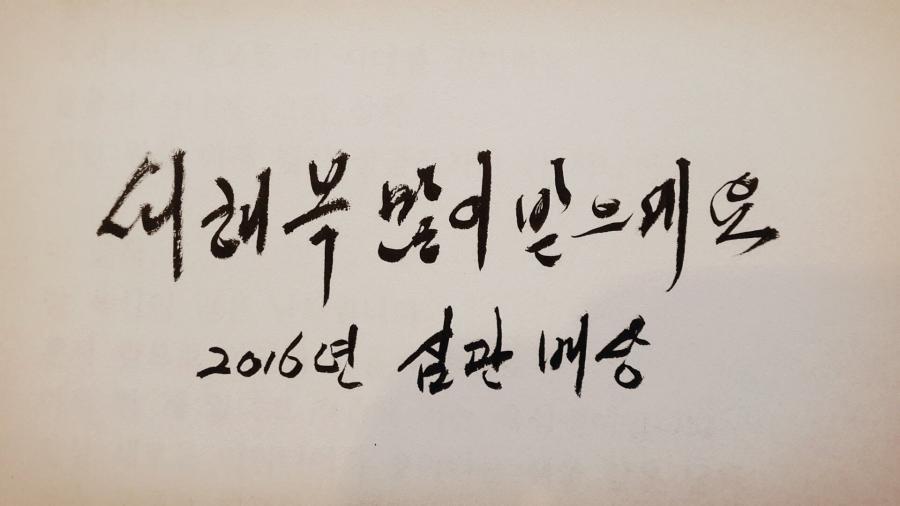 새해 복 많이 받으세요
2016년 섬관 배상